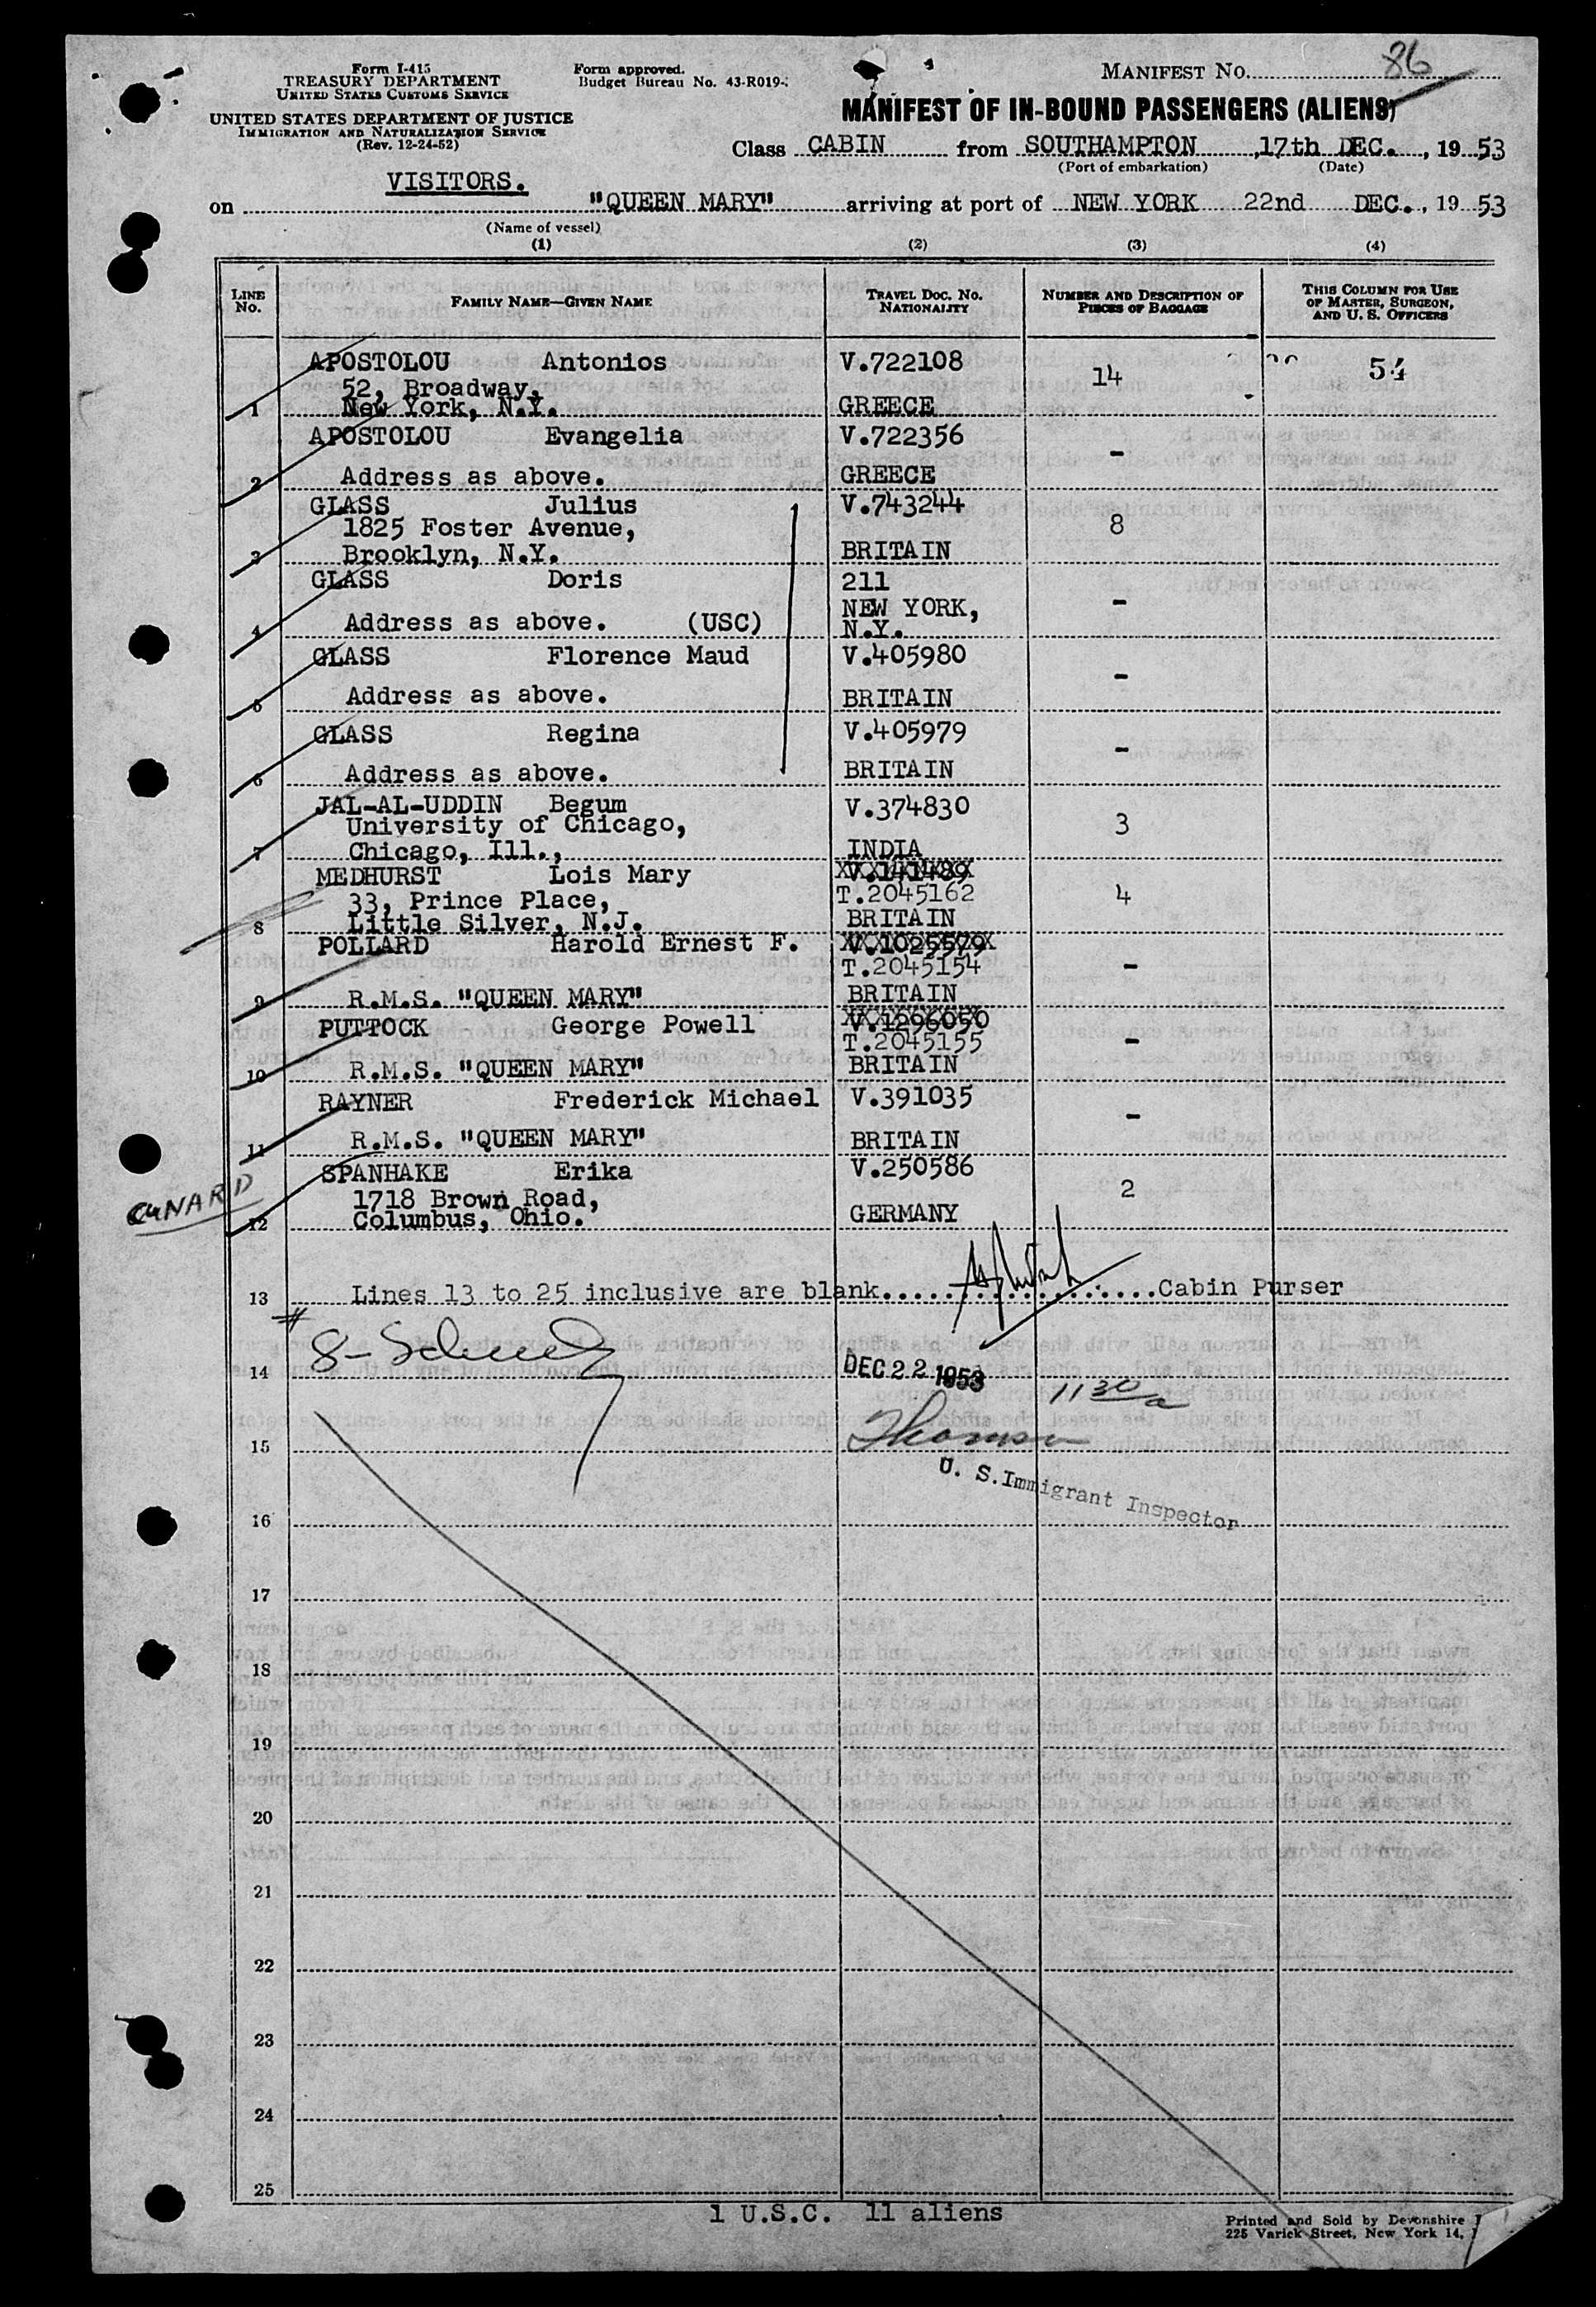 Form I-415
TREASURY DEPARTMENT
UNITED STATES CUSTOMS SERVICE
UNITED STATES DEPARTMENT OF JUSTICE
IMMIGRATION AND NATURALIZATION SERVICE
(Rev. 12-24-52)
Form approved.
Budget Bureau No. 43-R019-
MANIFEST NO. 86
MANIFEST OF IN-BOUND PASSENGERS (ALIENS)
Class CABIN from SOUTHAMPTON, 17th DEC., 1953
(Port of embarkation) (Date)
VISITORS.
on "QUEEN MARY" arriving at port of NEW YORK 22nd DEC., 1953
(Name of vessel)
(1) (2) (3) (4)
LINE NO. FAMILY NAME—GIVEN NAME TRAVEL DOC. NO. NATIONALITY NUMBER AND DESCRIPTION OF PIECES OF BAGGAGE THIS COLUMN FOR USE OF MASTER, SURGEON, AND U. S. OFFICERS
APOSTOLOU Antonios V.722108 14 54
52, Broadway,
1 New York, N.Y. GREECE
APOSTOLOU Evangelia V.722356 -
2 Address as above. GREECE
GLASS Julius V.743244 8
1825 Foster Avenue,
3 Brooklyn, N.Y. BRITAIN
GLASS Doris 211 -
NEW YORK,
4 Address as above. (USC) N.Y.
GLASS Florence Maud V.405980 -
5 Address as above. BRITAIN
GLASS Regina V.405979 -
6 Address as above. BRITAIN
JAL-AL-UDDIN Begum V.374830 3
University of Chicago,
7 Chicago, Ill., INDIA
MEDHURST Lois Mary
33, Prince Place, T.2045162 4
8 Little Silver, N.J. BRITAIN
POLLARD Harold Ernest F. V.1025579
T.2045154 -
9 R.M.S. "QUEEN MARY" BRITAIN
PUTTOCK George Powell V.1296050
T.2045155 -
10 R.M.S. "QUEEN MARY" BRITAIN
RAYNER Frederick Michael V.391035 -
11 R.M.S. "QUEEN MARY" BRITAIN
SPANHAKE Erika V.250586 2
1718 Brown Road,
CUNARD
12 Columbus, Ohio. GERMANY
13 Lines 13 to 25 inclusive are blank..................Cabin Purser
14 DEC 22 1953 11 30 a
15 Thomson
U. S. Immigrant Inspector
16
17
18
19
20
21
22
23
24
25
1 U.S.C. 11 aliens
Printed and Sold by Devonshire
225 Varick Street, New York 14,